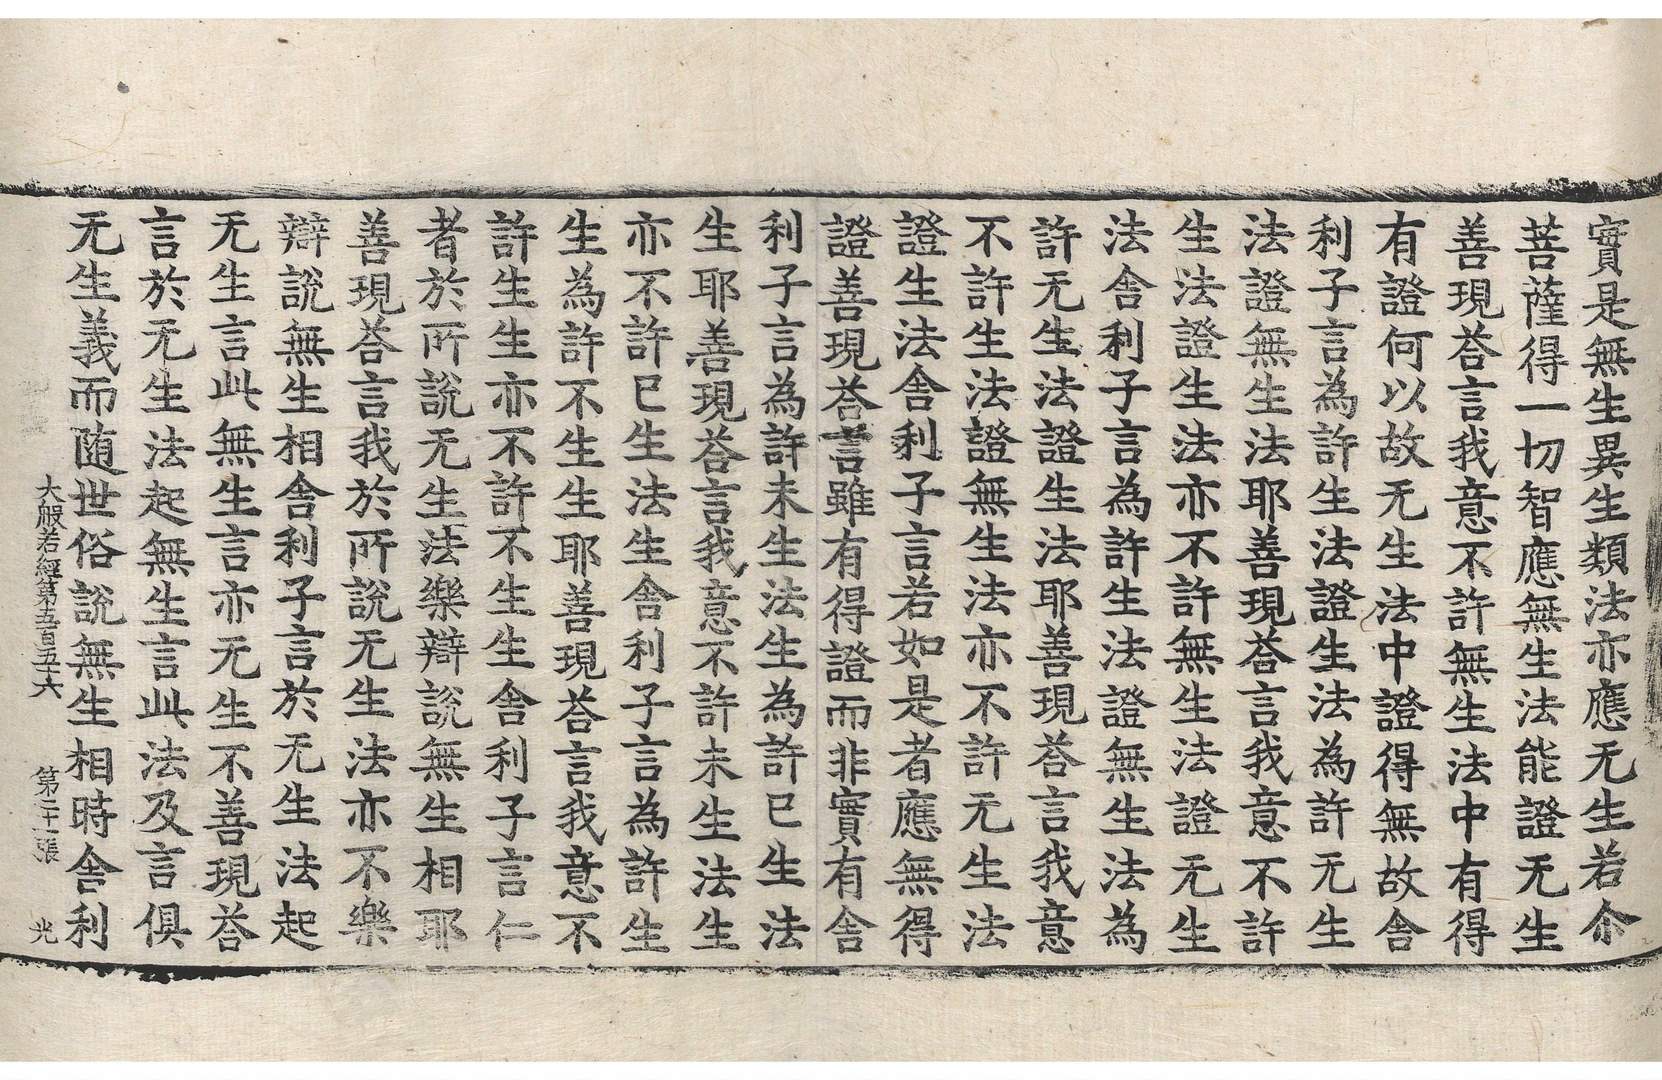 實是無生異生類法亦應无生若尒
菩薩得一切智應無生法能證无生
善現荅言我意不許無生法中有得
有證何以故无生法中證得無故舍
利子言為許生法證生法為許无生
法證無生法耶善現荅言我意不許
生法證生法亦不許無生法證无生
法舍利子言為許生法證無生法為
許无生法證生法耶善現荅言我意
不許生法證無生法亦不許无生法
證生法舍利子言若如是者應無得
證善現荅言雖有得證而非實有舍
利子言為許未生法生為許已生法
生耶善現荅言我意不許未生法生
亦不許已生法生舍利子言為許生
生為許不生生耶善現荅言我意不
許生生亦不許不生生舍利子言仁
者於所說无生法樂辯說無生相耶
善現荅言我於所說无生法亦不樂
辯說無生相舍利子言於无生法起
无生言此無生言亦无生不善現荅
言於无生法起無生言此法及言俱
无生義而随世俗說無生相時舍利
大般若經第五百五十六 第二十一張 光